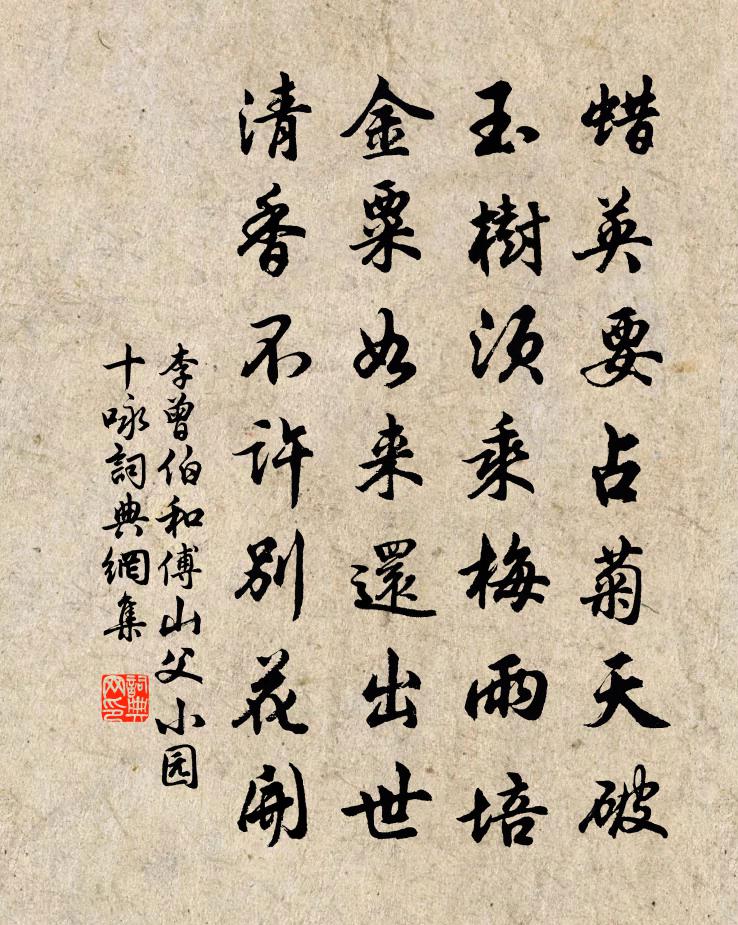 蜡英要占菊天破
玉樹须乘梅雨培
金粟如来還出世
清香不许别花開
李曾伯和傅山父小园
十咏詞典網集
詞典网印